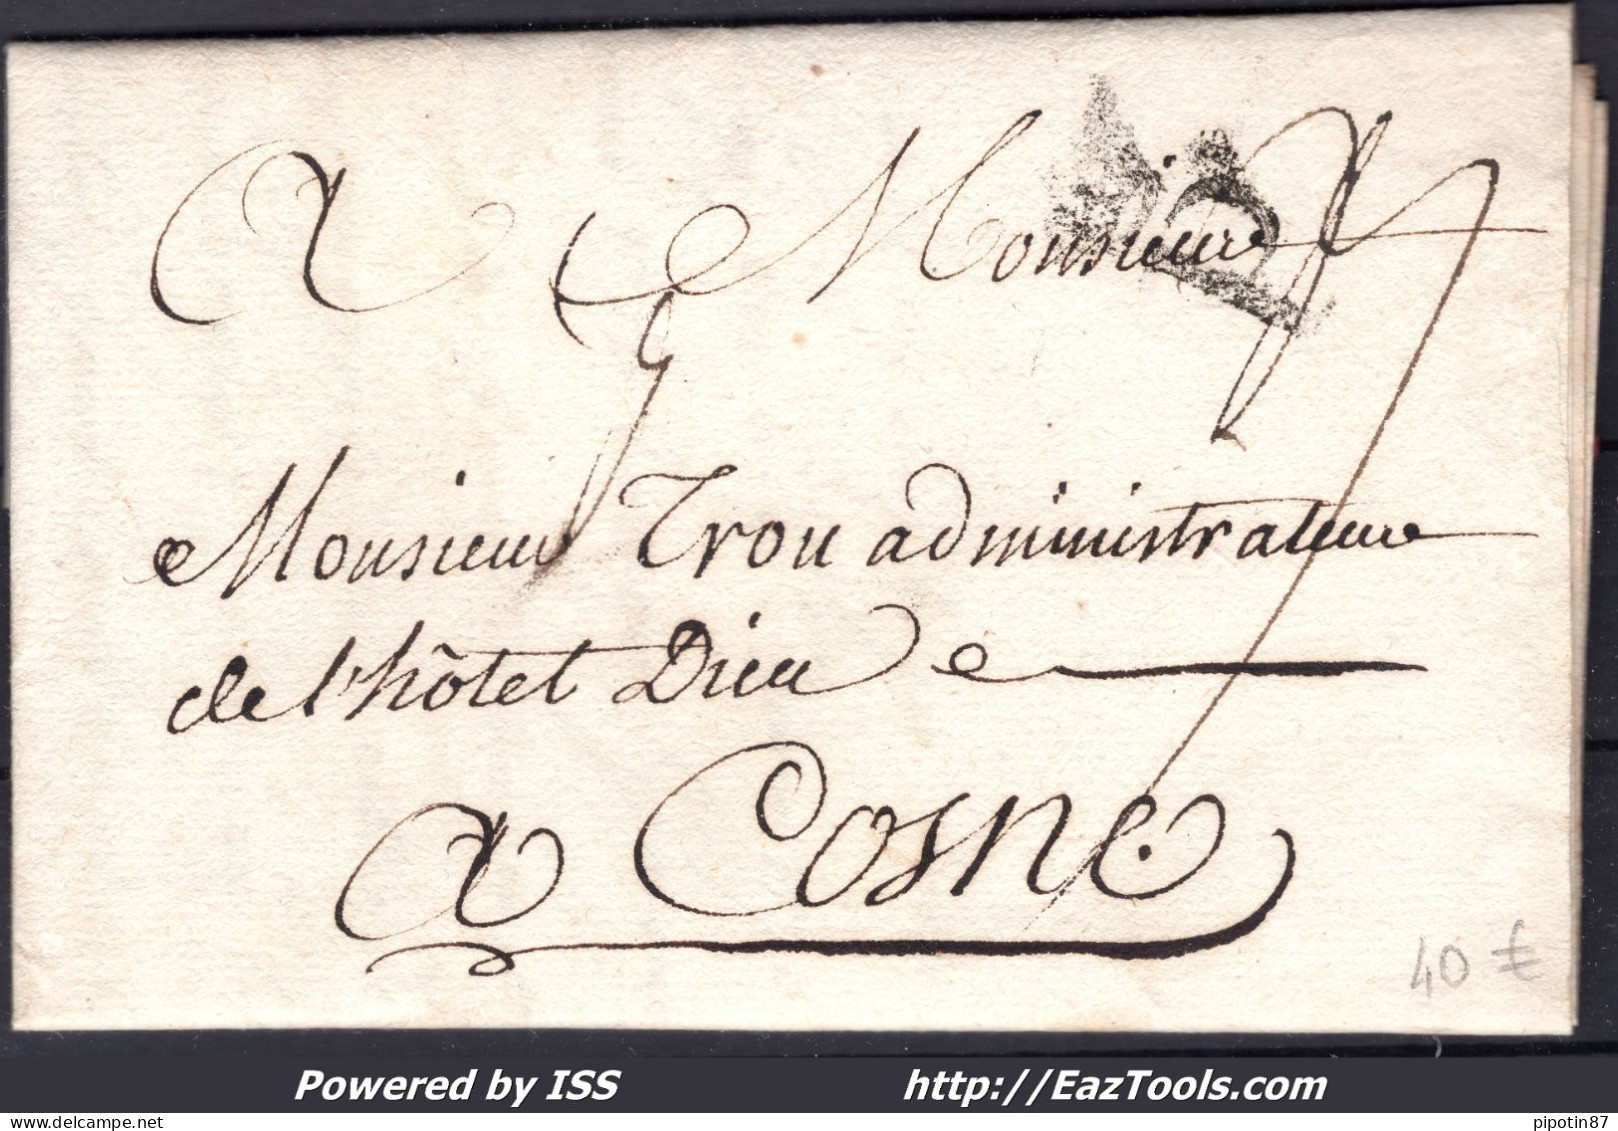 A Monsieur
Monsieur Trou administrateur
de l'hôtel Dieu
A Cosne
40 €
Powered by ISS http://EazTools.com
delcampe.net
pipotin87